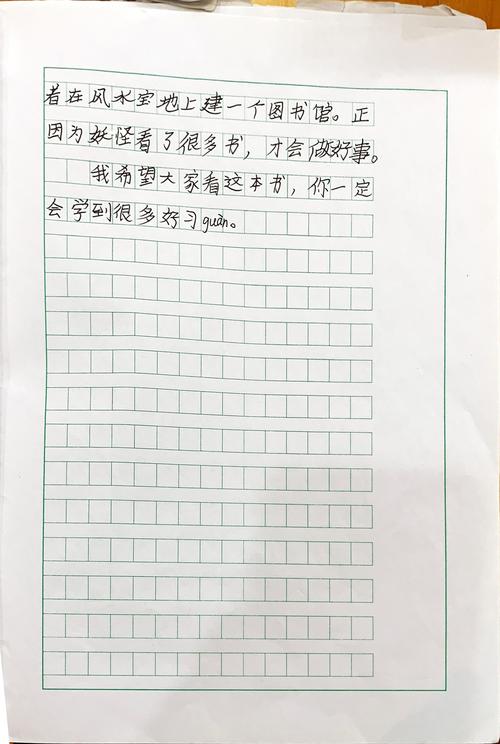 着在风水宝地上建一个图书馆。正
因为妖怪看了很多书，才会做好事。
我希望大家看这本书，你一定
会学到很多好习guàn。